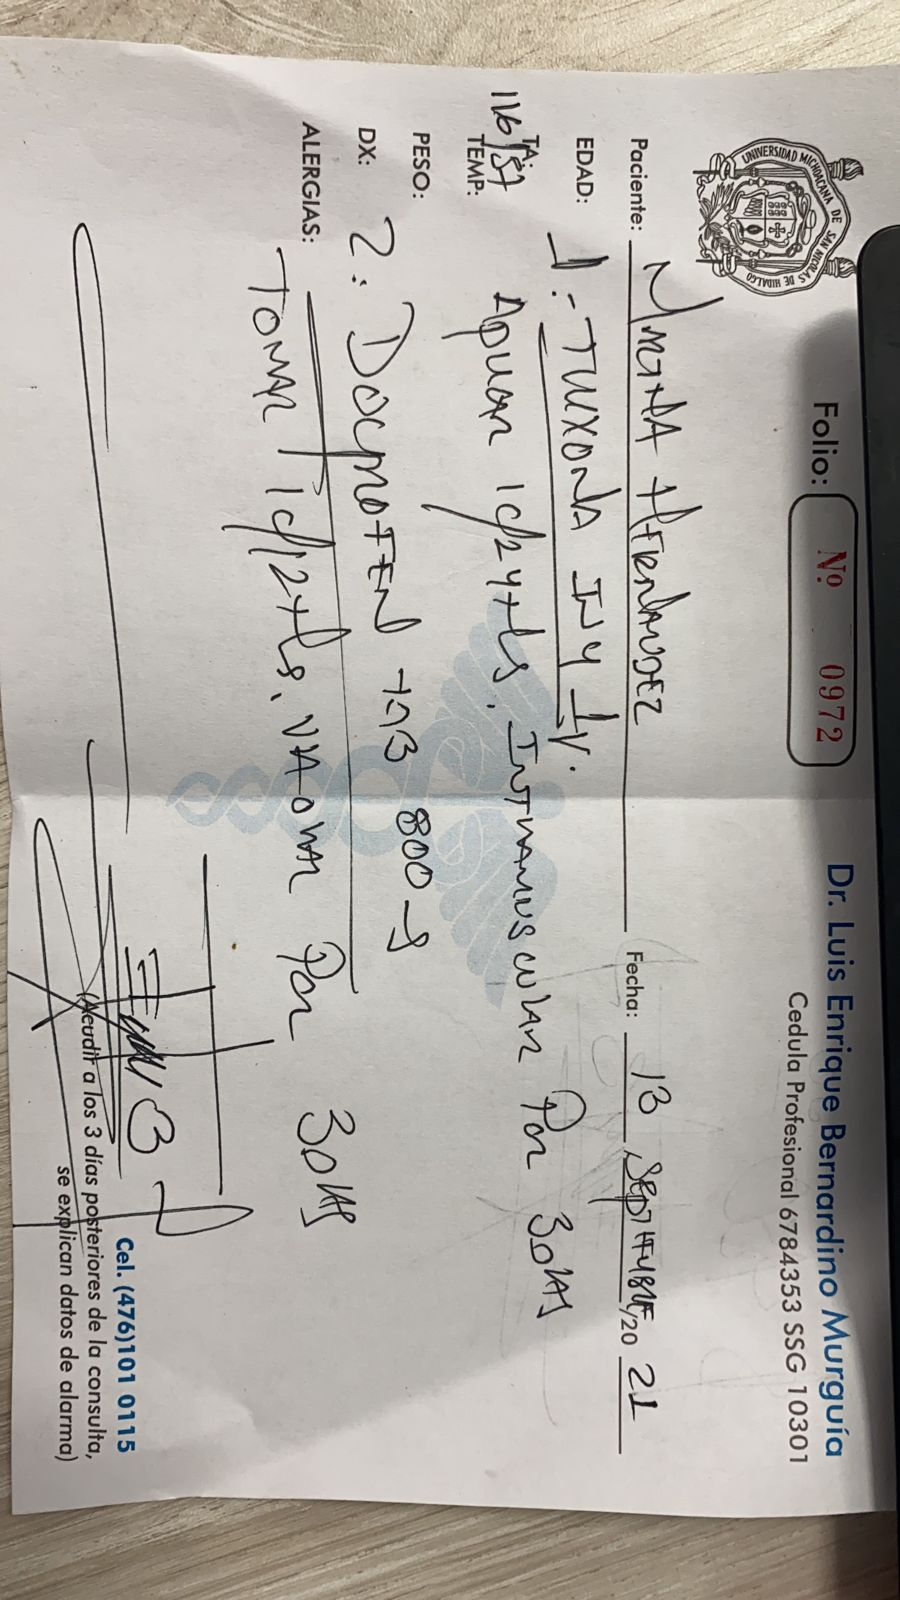 UNIVERSIDAD MICHOACANA DE SAN NICOLAS DE HIDALGO
Folio: Nº 0972
Dr. Luis Enrique Bernardino Murguía
Cedula Profesional 6784353 SSG 10301
Paciente: HERNANDEZ
Fecha: 13 SEPTIEMBRE /20 21
EDAD:
1.- TUXONA INY IV.
TA: 116/57
TEMP:
APLICAR 1 C/24 HS. INTRAMUSCULAR POR 3 DIAS
PESO:
DX:
2: DOCPROFEN TAB 800
ALERGIAS:
TOMAR 1 C/12 HS. VIA ORAL POR 3 DIAS
Cel. (476)101 0115
(Acudir a los 3 días posteriores de la consulta,
se explican datos de alarma)